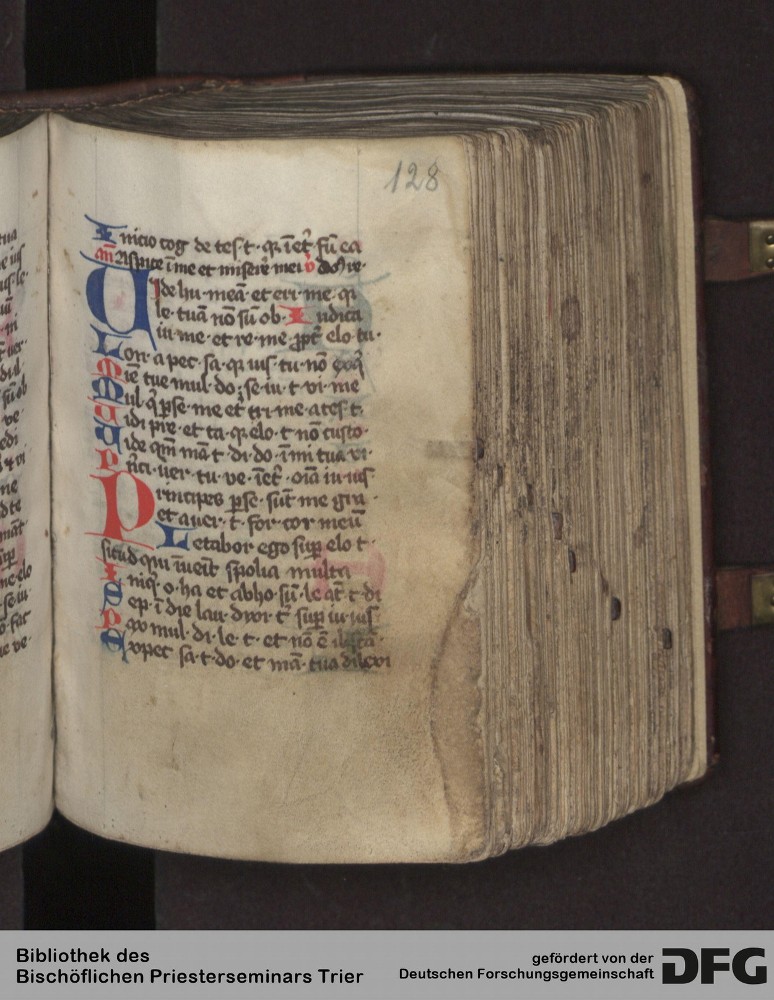 128
Inicio cog de tes·t· qꝛ īet̓ fū ea
an̄ Aspice ī me et miserē mei v̓ dn̄e
Vide hu· meā· et eri· me· qꝛ
le· tuā nō sū ob· Iudica
iu· me· et re· me ꝓpt̓ elo· tu·
Lon· a pec· sa· qꝛ ius· tu· nō exq̄
Mīe tue mul· do· se· iu· t· vi· me
Mul· qͥ ꝑse· me et̓ tri· me· a tes·t·
Vidi pre· et ta· qꝛ elo· t· nō custo·
Vide qm̄ mā·t· di· do· ī mi· tua vi·
Prīci· uer· tu· ve· īet̓· oīa iu· ius·
Principes ꝑse· sūt me gra·
et a uer·t· for· cor meū
Letabor ego suꝑ elo·t·
sicud qui īueīt spolia multa
Iniq̄· o· ha· et abho· sū· le aūt·t· di
Sep· ī die lau· dixi t̓ suꝑ iu· ius·
Pax mul· di· le·t· et nō ē
Expec sa·t· do· et mā· tua dilexi
Bibliothek des
Bischöflichen Priesterseminars Trier
gefördert von der
Deutschen Forschungsgemeinschaft DFG